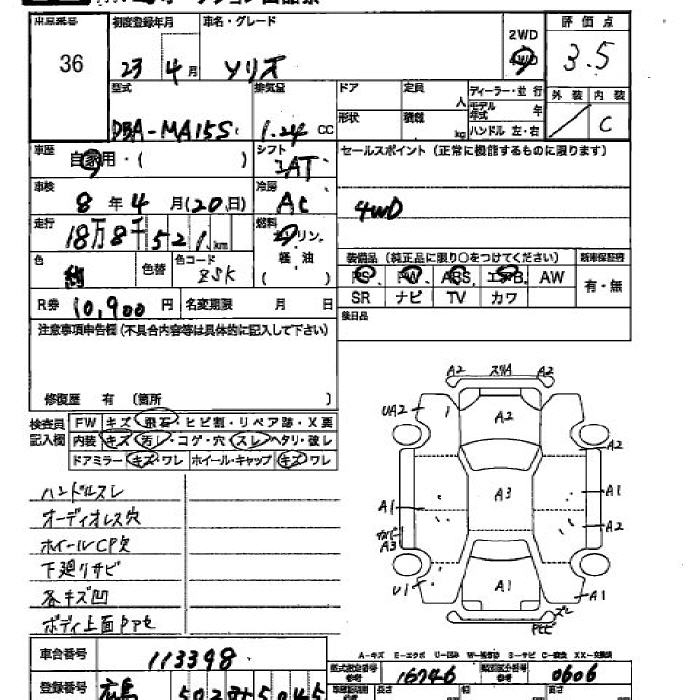 出品番号 初度登録年月 車名・グレード 2WD 4WD 評価点
36 23年 4月 ソリオ 3.5
型式 排気量 ドア 定員 人 ディーラー・並行 外装 内装
DBA-MA15S 1.24 CC 形状 積載 kg モデル年式 年 ハンドル 左・右 C
車歴 自家用・( ) シフト IAT セールスポイント(正常に機能するものに限ります)
車検 8年 4月(20日) 冷房 AC 4WD
走行 18万8千521km 燃料 ガソリン 軽油 ( )
装備品(純正品に限り○をつけてください) 新車保証書
色 紺 色替 色コード ZSK PS PW ABS エアB AW 有・無
R券 10,900円 名変期限 月 日 SR ナビ TV カワ
後日品
注意事項申告欄(不具合内容等は具体的に記入して下さい)
修復歴 有 (箇所 )
検査員記入欄 FW キズ・飛石・ヒビ割・リペア跡・X要
内装 キズ・汚レ・コゲ・穴・スレ・ヘタリ・破レ
ドアミラー キズ・ワレ ホイール・キャップ キズ・ワレ
A2 スリA A2
UA2 A2 A2
A1 A3 A1
カバーA3 A2
U1 A1 A1
ズレ
PてC
ハンドルスレ
オーディオレス穴
ホイールCP欠
下廻りサビ
各キズ凹
ボディ上面Pアセ
A-キズ E-エクボ U-凹み W-補修跡 S-サビ C-腐食 XX-交換済
車台番号 113398 型式指定番号 参考 16746 類別区分番号 参考 0606
登録番号 広島 502 長さ 幅 高さ